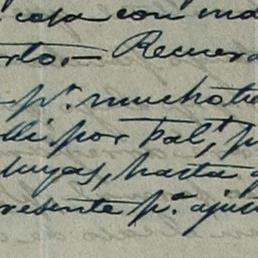 casa con ma
rto.- Recuer
pr. mucho tie
lli por Falt, p
luyas, hasta q
resente pa. ajus